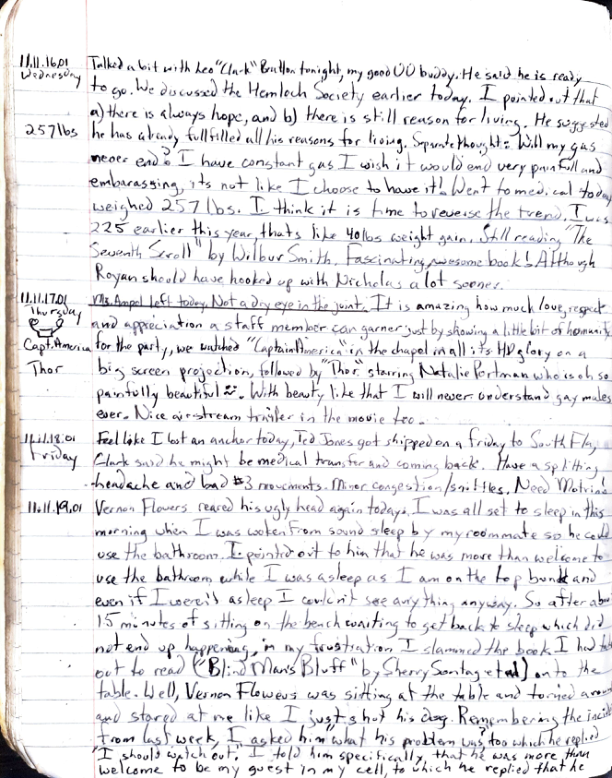 11.11.16.01 Talked a bit with Leo "Clark" Bratton tonight, my good UU buddy. He said he is ready
Wednesday to go. We discussed the Hemlock Society earlier today. I pointed out that
a) there is always hope, and b) there is still reason for living. He suggested
257 lbs he has already fullfilled all his reasons for living. Separate thought: Will my gas
never end? I have constant gas I wish it would end very painfull and
embarassing, its not like I choose to have it! Went to medical today
weighed 257 lbs. I think it is time to reverse the trend. I was
225 earlier this year, thats like 40lbs weight gain. Still reading "The
Seventh Scroll" by Wilbur Smith, Fascinating, awesome book! Although
Royan should have hooked up with Nicholas a lot sooner.
11.11.17.01 Ms. Ampel left today. Not a dry eye in the joint. It is amazing how much love, respect
Thursday and appreciation a staff member can garner just by showing a little bit of humanity
Capt. America for the party, we watched "Captain America" in the chapel in all its HD glory on a
Thor big screen projection, followed by "Thor" starring Natalie Portman who is oh so
painfully beautiful. With beauty like that I will never understand gay males
ever. Nice airstream trailer in the movie too.
11.11.18.01 Feel like I lost an anchor today, Ted Jones got shipped on a friday to South Fla,
Friday Clark said he might be medical transfer and coming back. Have a splitting
headache and bad #3 movements. Minor congestion/sniffles. Need Motrin!
11.11.19.01 Vernon Flowers reared his ugly head again today. I was all set to sleep in this
morning when I was woken from sound sleep by my roommate so he could
use the bathroom. I pointed out to him that he was more than welcome to
use the bathroom while I was asleep as I am on the top bunk and
even if I weren't asleep I couldn't see anything anyway. So after about
15 minutes of sitting on the bench waiting to get back to sleep which did
not end up happening, in my frustration I slammed the book I had
out to read ("Blind Man's Bluff" by Sherry Sontag et al) onto the
table. Well, Vernon Flowers was sitting at the table and turned around
and stared at me like I just shot his dog. Remembering the
from last week, I asked him "what his problem was?" too which he replied
"I should watch out." I told him specifically, that he was more than
welcome to be my guest in my cell, to which he replied that he